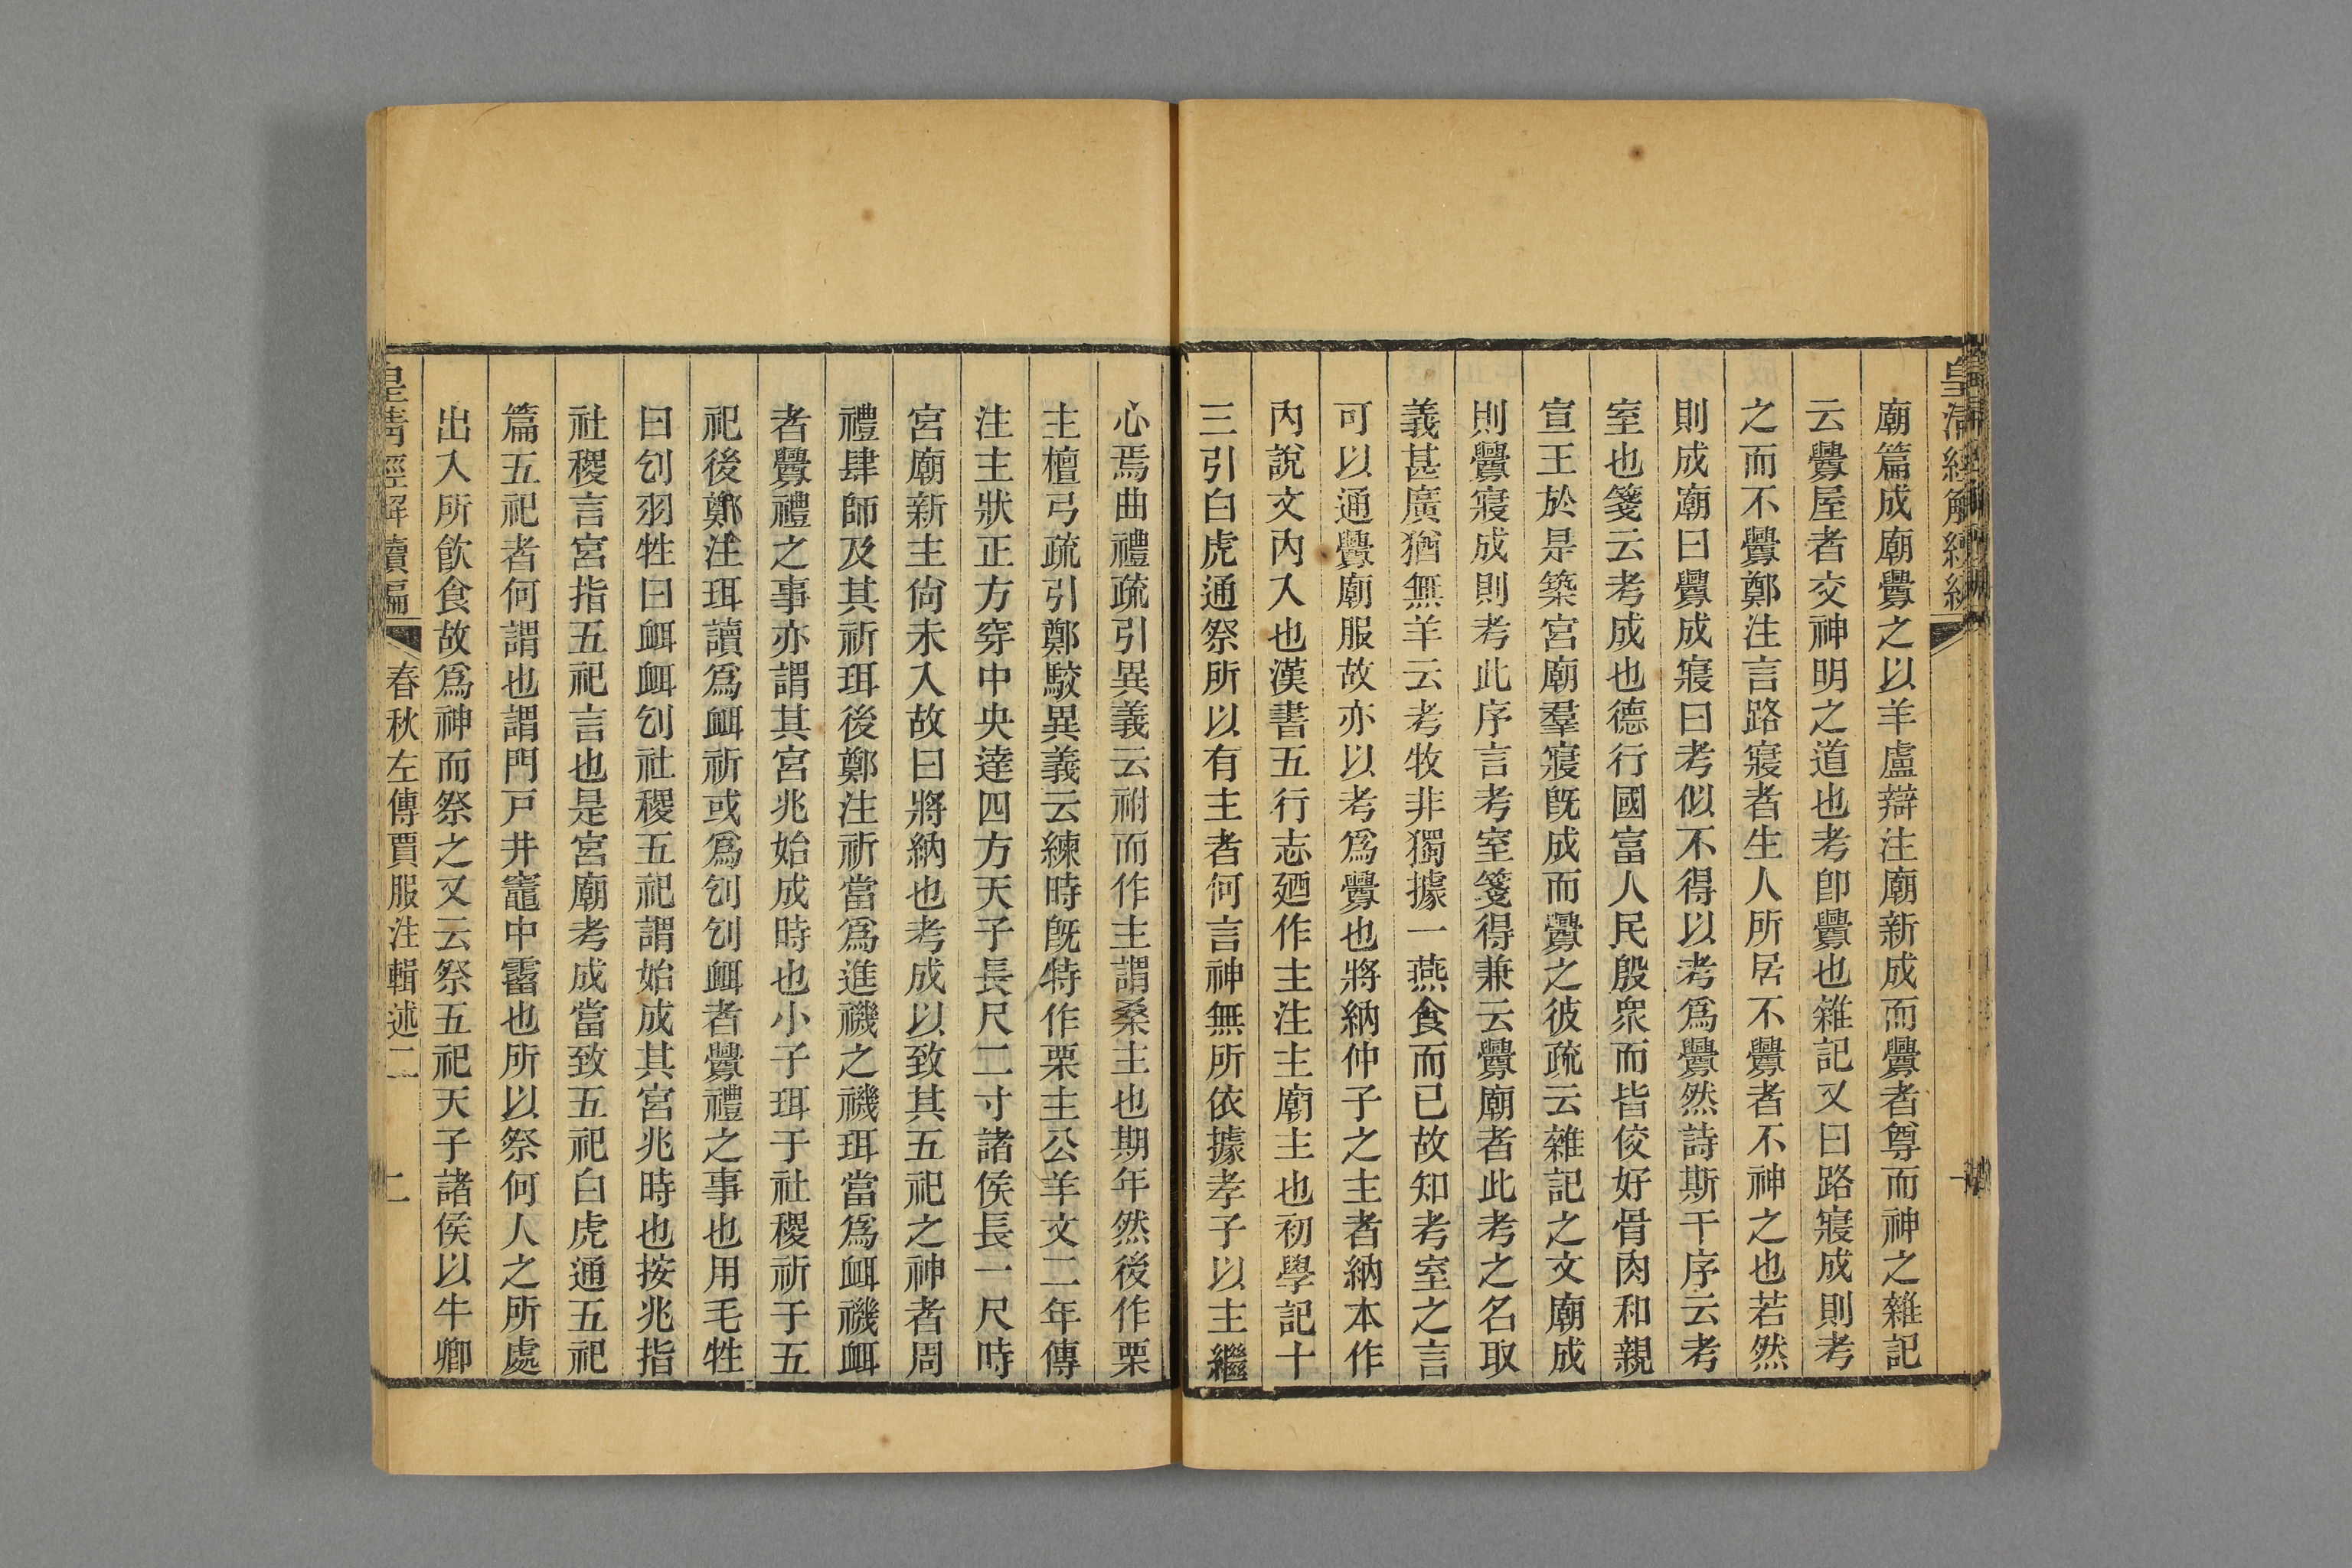 皇清經解續編
廟篇成廟釁之以羊盧辯注廟新成而釁者尊而神之雜記
云釁屋者交神明之道也考卽釁也雜記又曰路寢成則考
之而不釁鄭注言路寢者生人所居不釁者不神之也若然
則成廟曰釁成寢曰考似不得以考爲釁然詩斯干序云考
室也箋云考成也德行國富人民殷衆而皆佼好骨肉和親
宣王於是築宮廟羣寢旣成而釁之彼疏云雜記之文廟成
則釁寢成則考此序言考室箋得兼云釁廟者此考之名取
義甚廣猶無羊云考牧非獨據一燕食而已故知考室之言
可以通釁廟服故亦以考爲釁也將納仲子之主者納本作
內說文內入也漢書五行志廼作主注主廟主也初學記十
三引白虎通祭所以有主者何言神無所依據孝子以主繼
心焉曲禮疏引異義云祔而作主謂桑主也期年然後作栗
主檀弓疏引鄭駁異義云練時旣特作栗主公羊文二年傳
注主狀正方穿中央達四方天子長尺二寸諸侯長一尺時
宮廟新主尙未入故曰將納也考成以致其五祀之神者周
禮肆師及其祈珥後鄭注祈當爲進禨之禨珥當爲衈禨衈
者釁禮之事亦謂其宮兆始成時也小子珥于社稷祈于五
祀後鄭注珥讀爲衈祈或爲刉刉衈者釁禮之事也用毛牲
曰刉羽牲曰衈衈刉社稷五祀謂始成其宮兆時也按兆指
社稷言宮指五祀言也是宮廟考成當致五祀白虎通五祀
篇五祀者何謂也謂門戸井竈中霤也所以祭何人之所處
出入所飮食故爲神而祭之又云祭五祀天子諸侯以牛卿
皇清經解續編 春秋左傳賈服注輯述二 二